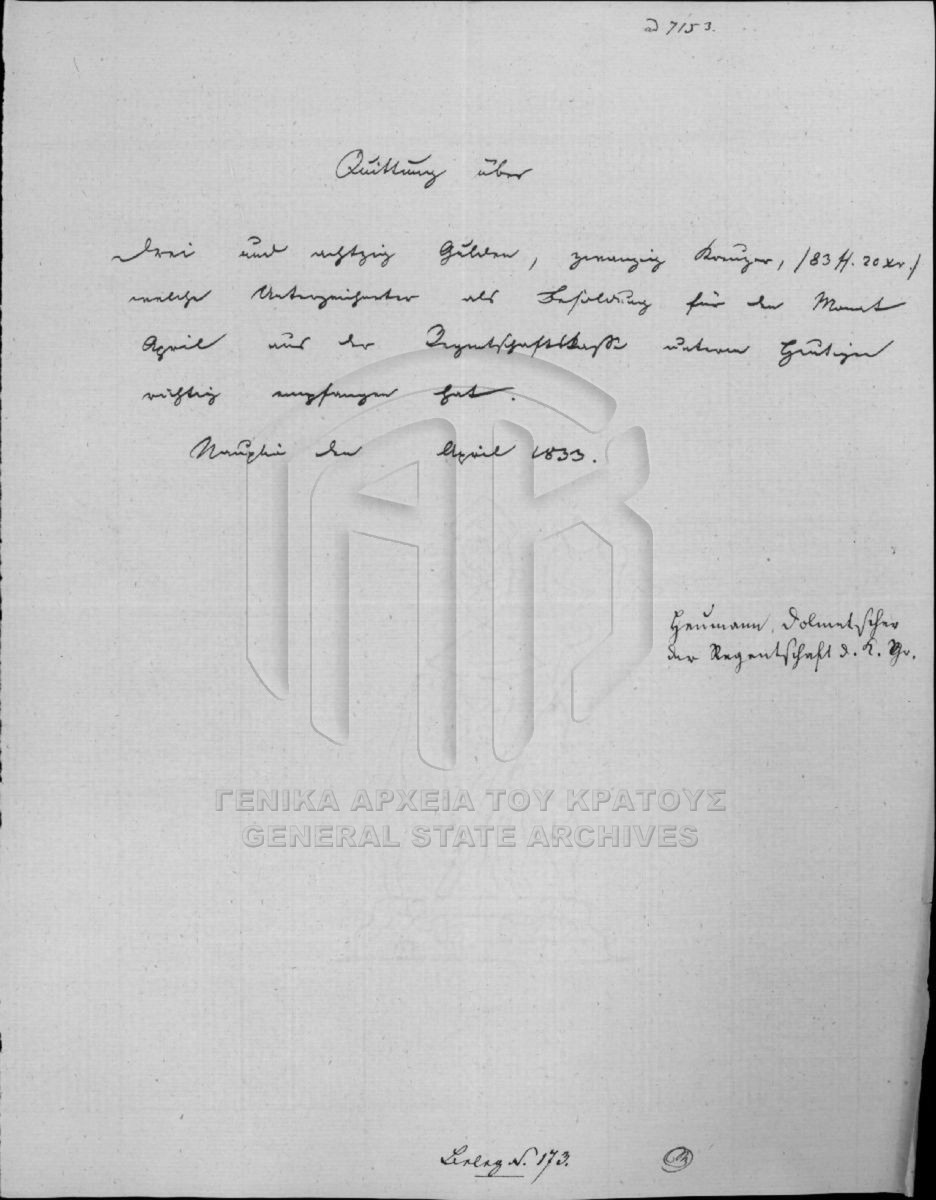 ad 7153.
Quittung über
Drei und achtzig Gulden, zwanzig Kreuzer, /83 fl. 20 xr./
welche Unterzeichneter als Besoldung für den Monat
April aus der Regentschaftskasse unterm Heutigen
richtig empfangen hat.
Nauplia den April 1833.
Heumann, Dolmetscher
der Regentschaft d. K. Gr.
ΓΕΝΙΚΑ ΑΡΧΕΙΑ ΤΟΥ ΚΡΑΤΟΥΣ
GENERAL STATE ARCHIVES
Beleg N. 173.